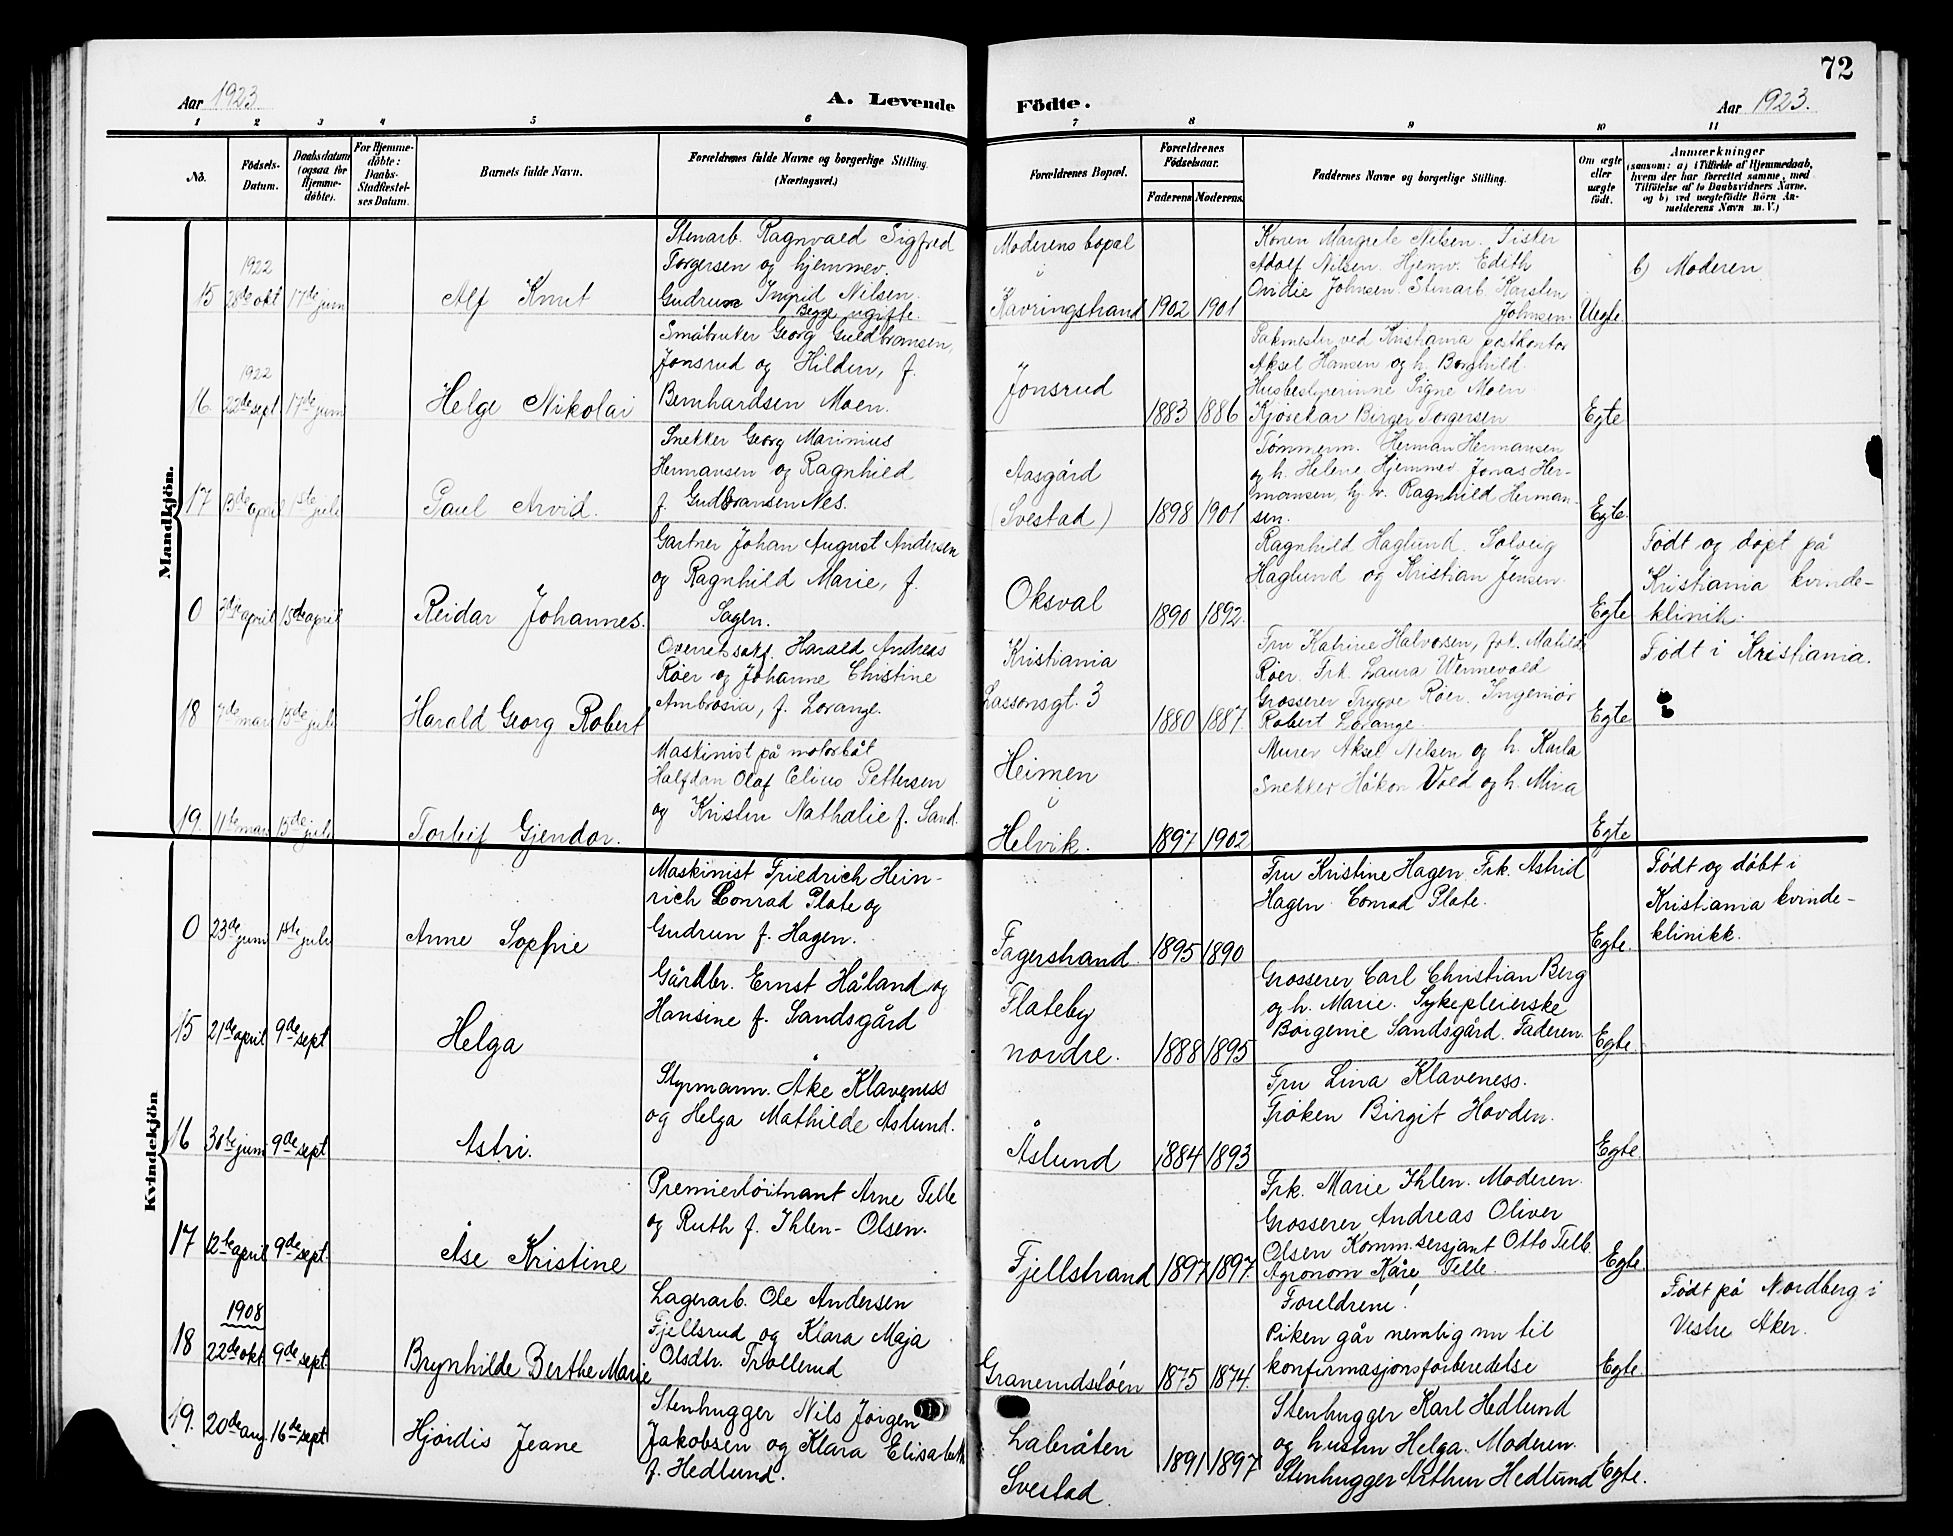 72
Aar 1923.
A. Levende Födte.
Aar 1923.
1 2 3 4 5 6 7 8 9 10 11
No.
Födsels-
Datum.
Daabsdatum
(ogsaa for
Hjemme-
döbte).
For Hjemme-
döbte:
Daabs-
Stadfæstel-
ses Datum.
Barnets fulde Navn.
Forældrenes fulde Navne og borgerlige Stilling.
(Næringsvei.)
Forældrenes Bopæl.
Forældrenes
Födselsaar.
Faderens
Moderens
Faddernes Navne og borgerlige Stilling.
Om ægte
eller
uægte
født.
Anmærkninger
(saasom: a) i Tilfælde af Hjemmedaab,
hvem der har forrettet samme, med
Tilföielse af to Daabsvidners Navne.
og b) ved uægtefödte Börn An-
melderens Navn m. V.)
Mandkjön.
1922
15 28de okt 17de juni
Alf Knut
Stenarb. Ragnvald Sigfred
Torgersen og hjemmev.
Gudrun Ingrid Nilsen.
Begge ugifte.
Moderens bopal
Kavringstrand
1902 1901
Konen Margrete Nilsen. Fisker
Adolf Nilsen. Hjemv. Edith
Ovidie Johnsen. Stenarb. Karsten
Johnsen.
Uegte
b) Moderen
1922
16. 22de sept 17de juni
Helge Nikolai
Småbruker Georg Guldbransen,
Jonsrud og Hildur, f.
Bernhardsen Moen.
Jonsrud
1883 1886
Pakmester ved Kristiania postkontor
Aksel Hansen og h. Borghild.
Husbestyrerinne Signe Moen
Kjøsekar Birger Torgersen
Egte
17 13de april 1ste juli
Paul Arvid.
Snekker Georg Marinius
Hermansen og Ragnhild
f. Gudbransen Nes.
Aasgård
(Svestad)
1898 1901
Tømmerm. Herman Hermansen
og h. Helene, Hjemmev. Jonas Her-
mansen, hj. v. Ragnhild Herman-
sen.
Egte.
0 3dje april 15de april
Reidar Johannes.
Gartner Johan August Andersen
og Ragnhild Marie, f.
Sagen.
Oksval
1890 1892.
Ragnhild Haglund. Solveig
Haglund og Kristian Jensen.
Egte
Født og døpt på
Kristiania kvinde-
klinik.
18 7de mars 15de juli
Harald Georg Robert
Overretssakf. Harald Andreas
Röer og Johanne Christine
Ambrosia, f. Lorange.
Kristiania
Lassonsgt. 3
1880 1887.
Fru Katrine Halvorsen, frk. Matilde
Röer. Frk. Laura Wennevold
Grosserer Trygve Röer. Ingeniør
Robert Lorange.
Egte
Født i Kristiania.
19. 11te mars 15de juli
Torleif Gjendor.
Maskinist på motorbåt
Halfdan Olaf Celius Pettersen
og Kristin Nathalie f. Sand.
Heimen
Helvik.
1897 1902
Murer Aksel Nilsen og h. Karla
Snekker Håkon Vold og h. Mina
Egte
Kvindekjön
0 23de juni 1ste juli
Anne Sophie
Maskinist Friedrich Hein-
rich Conrad Plate og
Gudrun f. Hagen.
Fagerstrand.
1895 1890
Fru Kristine Hagen. Frk. Astrid
Hagen. Conrad Plate.
Egte.
Født og døbt i
Kristiania kvinde-
klinikk.
15 21de april 9de sept
Helga
Gårdbr. Ernst Håland og
Hansine f. Sandsgård
Flateby
nordre.
1888 1895
Grosserer Carl Christian Berg
og h. Marie. Sykepleierske
Børgenie Sandsgård. Faderen.
Egte.
16 30te juni 9de sept
Astri.
Styrmann. Åke Klaveness
og Helga Mathilde Åslund.
Åslund
1884 1893
Fru Lina Klaveness.
Frøken Birgit Hovden.
Egte
17 12te april 9de sept.
Åse Kristine
Premierløitnant Arne Telle
og Ruth f. Ihlen-Olsen.
Fjellstrand
1897 1897.
Frk. Marie Ihlen. Moderen.
Grosserer Andreas Oliver
Olsen Komm.sersjant Otto Telle.
Agronom Kåre Telle.
Egte
1908
18 22de okt. 9de sept.
Brynhilde Berthe Marie
Lagerarb. Ole Andersen
Fjellsrud og Klara Maja
Olsdtr. Trollerud
Granerudsløen
1875 1874.
Foreldrene!
Piken går nemlig nu til
konfirmasjonsforberedelse
Egte.
Født på Nordberg i
Vestre Aker.
19. 20de aug. 16de sept
Hjørdis Jeane
Stenhugger Nils Jørgen
Jakobsen og Klara Elisabeth
f. Hedlund.
Labråten
Svestad.
1891 1897
Stenhugger Karl Hedlund
og hustru Helga. Moderen.
Stenhugger Arthur Hedlund
Egte.